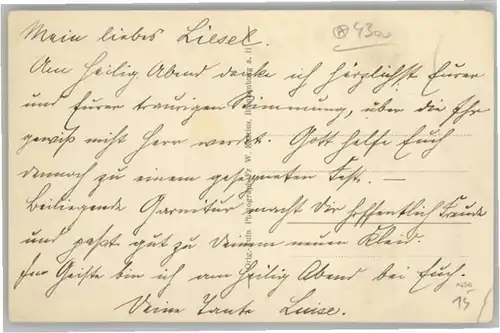 Mein liebes Liesel.
Am Heilig Abend denke ich herzlichst Eurer
und Eurer traurigen Stimmung, über die Ihr
gewiß nicht Herr werdet. Gott helfe Euch
dennoch zu einem gesegneten Fest. —
Beiliegende Garnitur macht Dir hoffentlich Freude
und paßt gut zu Deinem neuen Kleid.
Im Geiste bin ich am Heilig Abend bei Euch.
Deine Tante Luise.